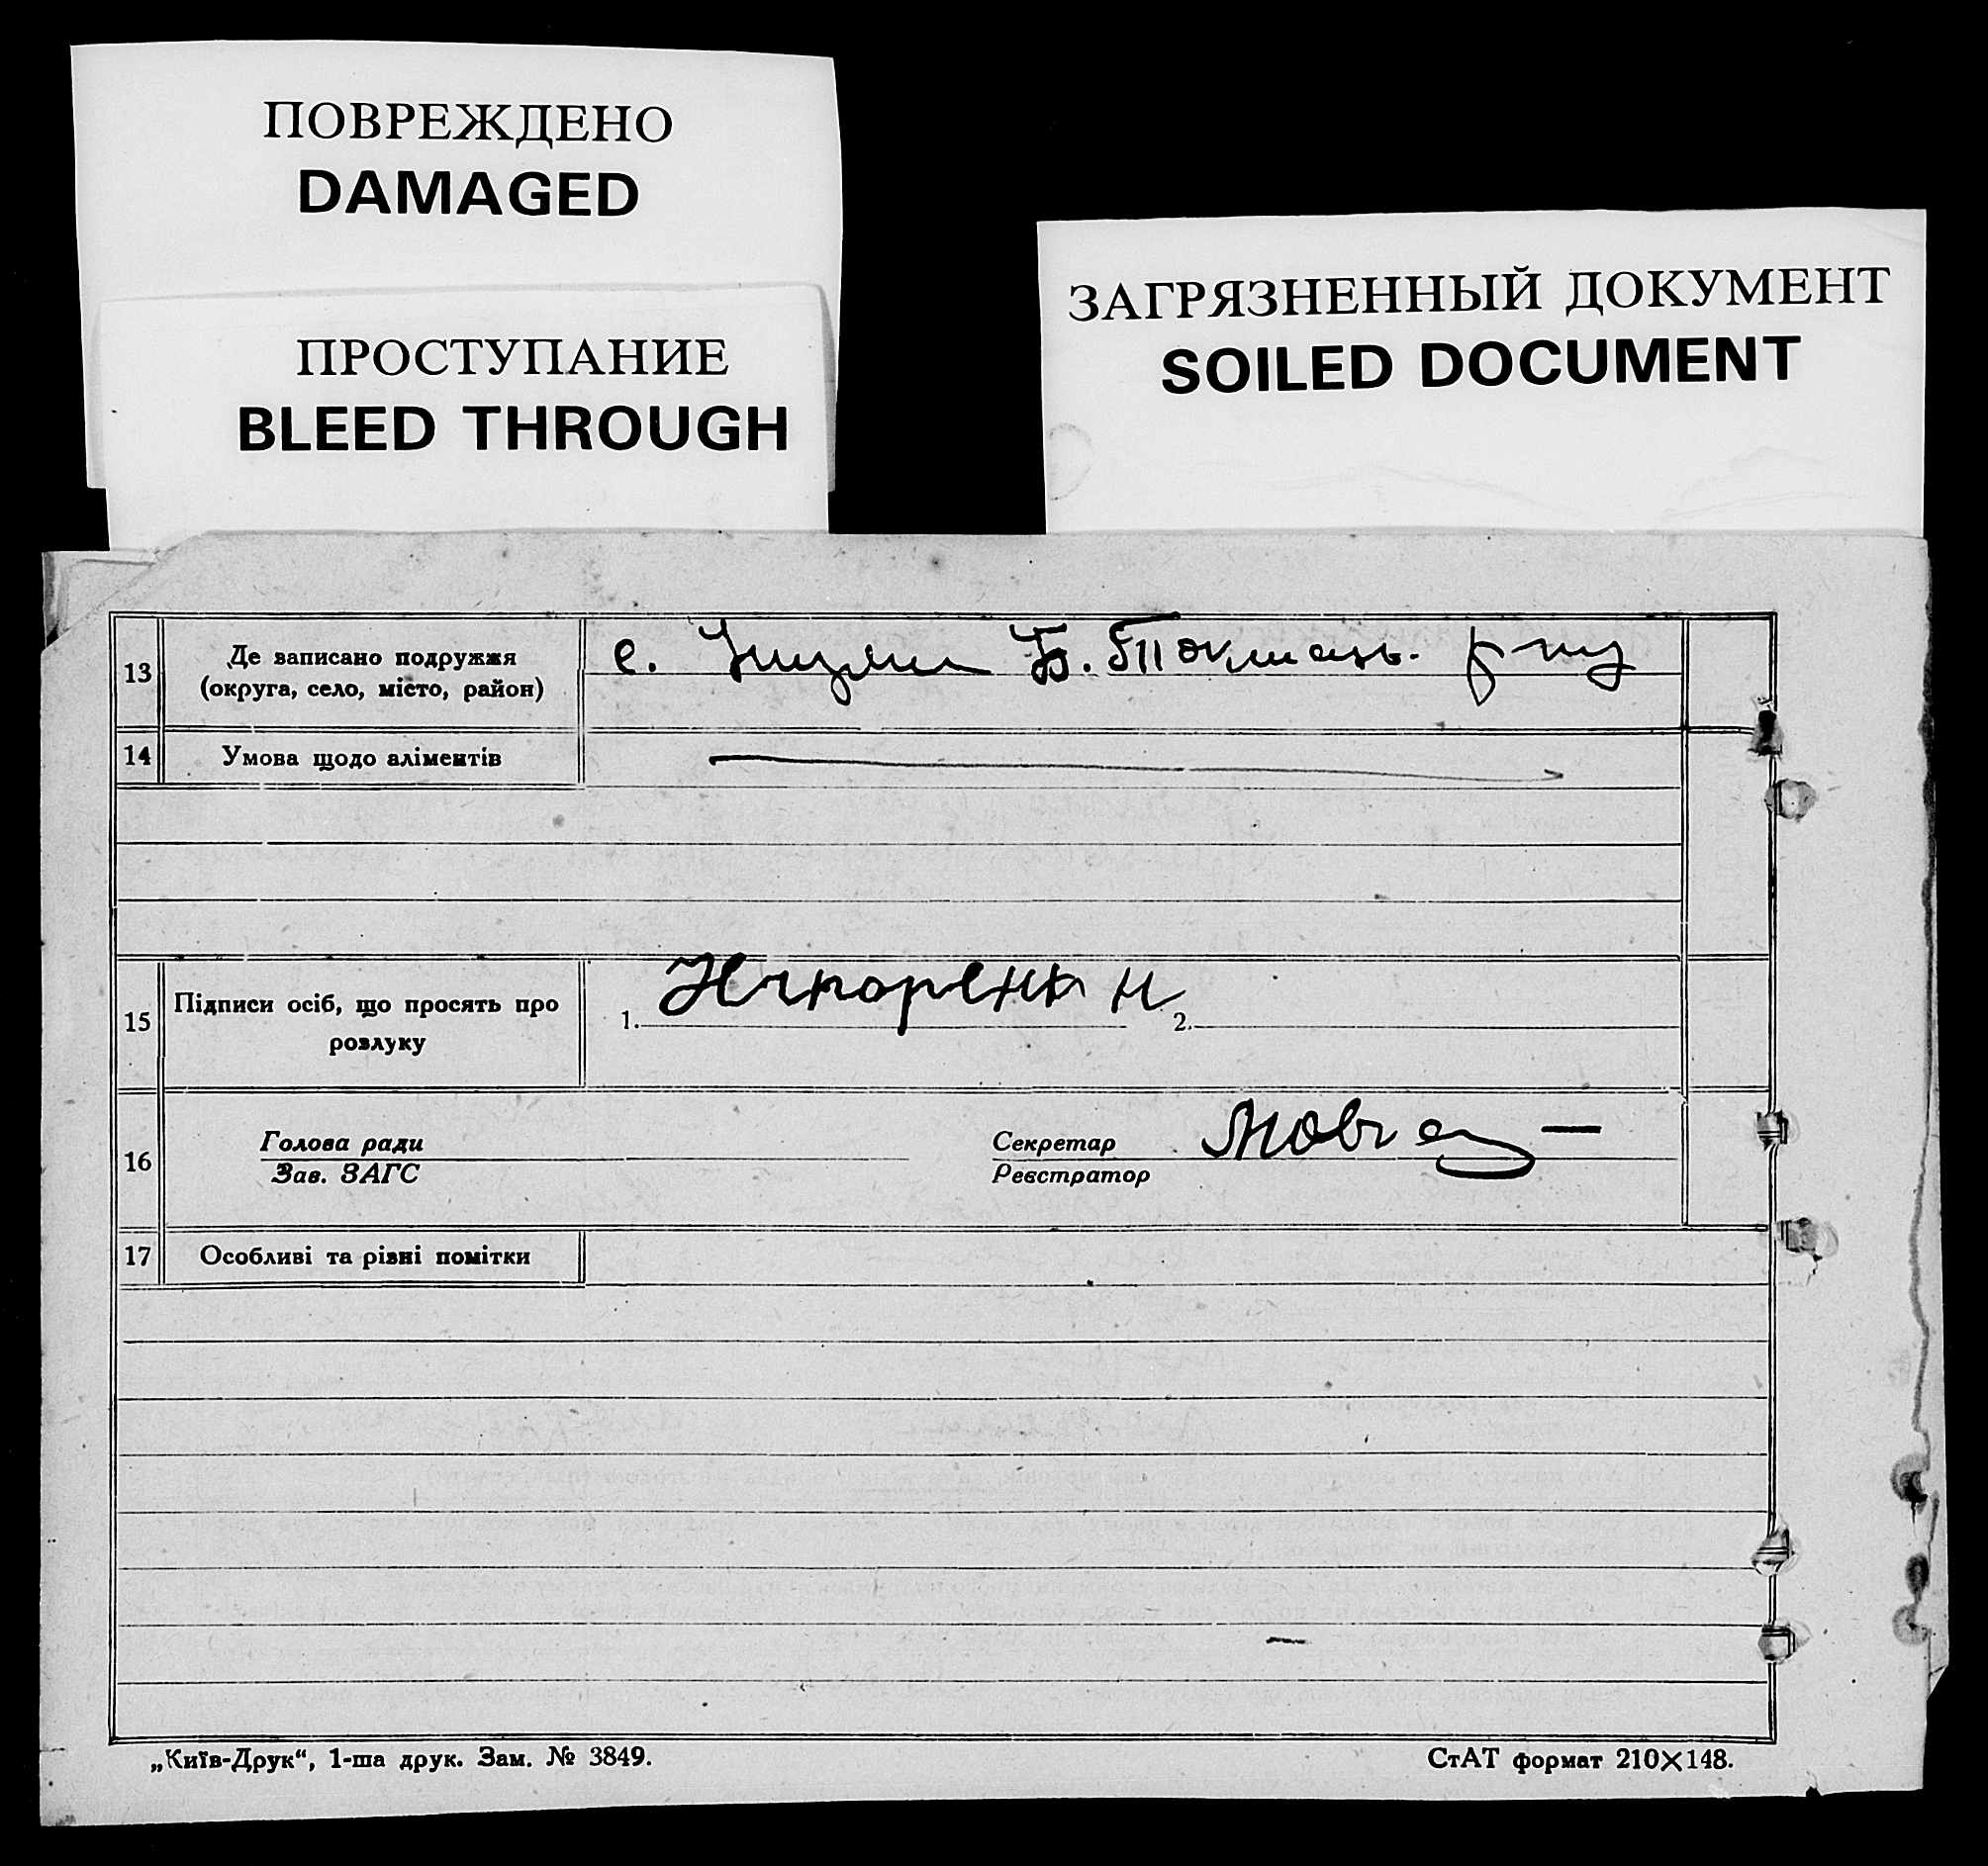 ПОВРЕЖДЕНО
DAMAGED
ПРОСТУПАНИЕ
BLEED THROUGH
ЗАГРЯЗНЕННЫЙ ДОКУМЕНТ
SOILED DOCUMENT
13 Де записано подружжя
(округа, село, місто, район)
с. Б. Токмаць.
14 Умова щодо аліментів
15 Підписи осіб, що просять про
розлуку
1. 2.
16 Голова ради
Зав. ЗАГС
Секретар
Реєстратор
17 Особливі та різні помітки
„Київ-Друк“, 1-ша друк. Зам. № 3849.
СтАТ формат 210×148.